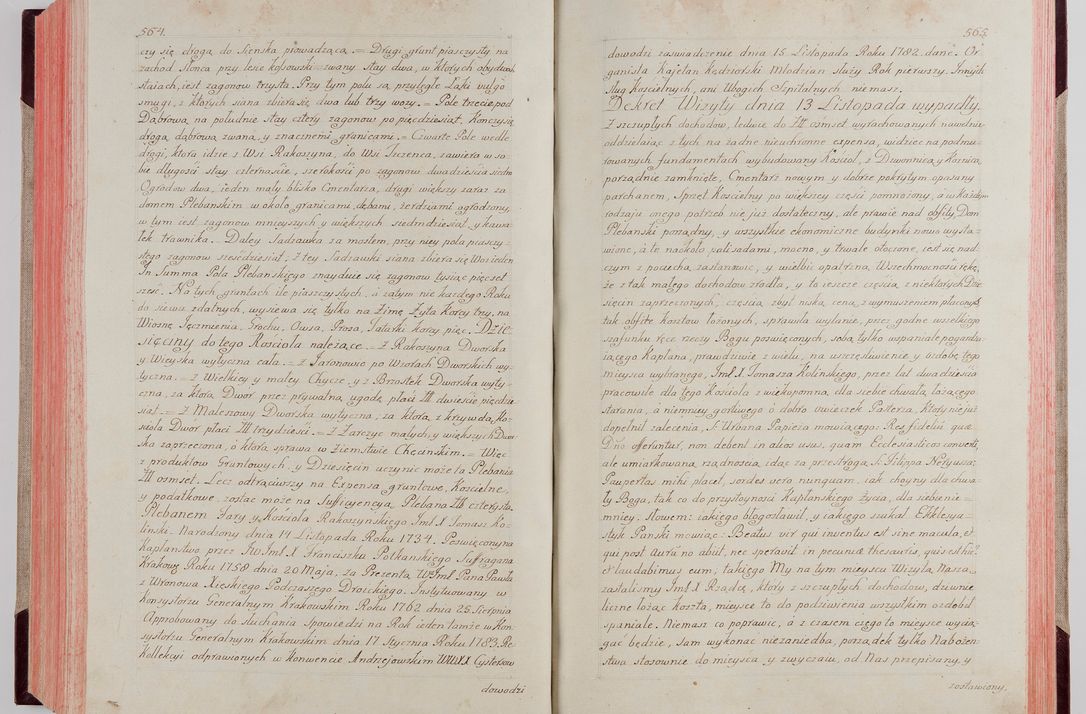 564.
czy się drogą do Sienska prowadzącą. = Drugi grunt piasczysty na
zachod słonca przy lesie Kossowski zwany. Stay dwa, w ktorych obydwuch
staiach, iest zagonow trzysta. Przy tym polu są przyległe Łąki vulgo
smugi, z ktorych siana zbiera się dwa lub trzy wozy. = Pole trzecie pod
Dąbrową na południe, stay cztery zagonow po pięcdziesiąt. Konczy się
drogą, dąbrową zwaną, y znacznemi granicami. = Czwarte Pole wedle
drogi, ktora idzie z Wsi Rakoszyna, do Wsi Tczenca, zawiera w so-
bie długości stay czternaście, szerokości po zagonow dwadzieścia siedm
Ogrodow dwa, ieden mały blisko Cmentarza, drugi większy zaraz za
domem Plebanskim w około granicami, dębami, żerdziami ogrodzony,
w tym iest zagonow mnieyszych y większych siedmdziesiąt, y kawa-
łek trawnika. = Daley Sadzawka za mostem, przy niey pola piasczy-
stego zagonow szescdziesiąt, z tey Sadzawki siana zbiera się Woz ieden
In Summa Pola Plebanskiego znayduie się zagonow tysiąc pięcset
szesć. Na tych gruntach ile piasczystych, a zatym nie każdego Roku
do siewu zdatnych, wysiewa się tylko na Zimę Żyta Korcy trzy, na
Wiosnę Jęczmienia, Grochu, Owsa, Prosa, Tatarki korcy pięc. Dzie-
sięciny do tego Kościoła należące = z Rakoszyna Dworska
y Wieyska wytyczna cała. = z Jaronowic po Wołach Dworskich wy-
tyczna. = z Wielkiey y małey Chycze, y z Brzostek Dworska wyty-
czna, za ktorą Dwor przez prywatną ugodę płaci Zł dwieście pięcdzie-
siąt. = z Maleszowy Dworska wytyczna, za ktorą z krzywdą Ko-
ścioła Dwor płaci Zł trzydzieści. = z Żarczyc małych, y większych Dwor-
ska zaprzeczona, o ktorą sprawa w Ziemstwie Chęcinskim. = Więc
z produktow Gruntowych, y Dziesięcin uczynic może ta Plebania
Zł osmset. Lecz odtrąciwszy na Expensa gruntowe, Kościelne,
y podatkowe, zostac może na Sufficyencyą Plebana Zł czterysta.
Plebanem Fary y Kościoła Rakoszynskiego Jmć X Tomasz Ko-
linski. Narodzony dnia 14 Listopada Roku 1734. Poswięcony na
Kapłanstwo przez JW Jmć X Franciszka Potkanskiego Suffragana
Krakowę Roku 1758 dnia 20 Maja, za Prezentą W Jmć Pana Pawła
z Wronowa Xieskiego Podczaszego Drozckiego. Instytuowany w
Konsystorzu Generalnym Krakowskim Roku 1762 dnia 25 Sierpnia
Approbowany do słuchania Spowiedzi na Rok ieden tamże w Kon-
systorzu Generalnym Krakowskim dnia 17 Stycznia Roku 1783. Re-
kollekcyi odprawionych w Konwencie Andrzejowskim WWXX Cystersow
dowodzi
565.
dowodzi zaswiadczenie dnia 15 Listopada Roku 1782. dane. Or-
ganista Kajetan Kędziorski Młodzian służy Rok pierwszy. Innych
sług Kościelnych, ani Ubogich Szpitalnych niemasz.
Dekret Wizyty dnia 13 Listopada wypadły.
Z szczupłych dochodow, ledwie do Zł osmset wyrachowanych zupełnie
oddzielaiąc z tych na żadne nieuchronne expensa, widziec na podmu-
rowanych fundamentach wybudowany Kościoł, z Dzwonnicą y Kostnicą,
porządnie zamknięte, Cmentarz nowym y dobrze pokrytym opasany
parchanem, Sprzęt Kościelny po większey części pomnożony, a w każdym
rodzaju onego potrzeb nie już dostateczny, ale prawie nad obfity, Dom
Plebanski porządny, y wszystkie ekonomiczne budynki nowo wysta-
wione, a te naokoło palisadami, mocno, y trwale otoczone, iest się nad
czym z pociechą zastanowic, y wielbic opatrzną Wszechmocności rękę,
że z tak małego dochodow zrodła, y to ieszcze częścią z niektorych Dzie-
sięcin zaprzeczonych, częścią zbyt niską ceną, z wymuszeniem płaconych
tak obfite kosztow łożonych, sprawiła wylanie, przez godne wszelkiego
szafunku ręce rzeczy Bogu poswięconych, sobą tylko wspaniale pogardza-
iącego Kapłana, prawdziwie z wielu, na uszczęśliwienie y ozdobę tego
mieysca wybranego, Jmć X Tomasza Kolinskiego, przez lat dwadzieścia
pracowite dla tego Kościoła z wiekopomną dla siebie chwałą łożącego
starania, a niemniey gorliwego o dobro owieczek Pasterza, Ktory nie już
dopełnił zalecenia, S. Urbana Papieża mowiącego: Res fidelium quæ
Dño offeruntur, non debent in alios usus, quam Ecclesiasticos converti,
ale umiarkowaną rządnością, idąc za przestrogą S. Filippa Neryusza:
Paupertas mihi placet, sordes vero nunquam, iak choyny dla chwa-
ły Boga, tak co do przystoyności Kapłanskiego życia, dla siebie nie-
mniey. Słowem: iakiego błogosławił, y iakiego szukał Ekklesya-
styk Panski mowiąc: Beatus vir qui inventus est sine macula, et
qui post aurum no abiit, nec speravit in pecuniæ thesauris, quis est hic?
et laudabimus eum, takiego My na tym mieyscu Wizytą Naszą
zastalismy Jmć X Rządcę, ktory z szczupłych dochodow, dziwnie
liczne łożąc Koszta, mieysce to do podziwienia wszystkim ozdobił
spaniale. Niemasz co poprawic, a z czasem czego to mieysce wycią-
gać będzie, sam wykonac niezaniedba, porządek tylko Nabożen-
stwa stosownie do mieysca y zwyczaiu, od Nas przepisany, y
zostawiony,